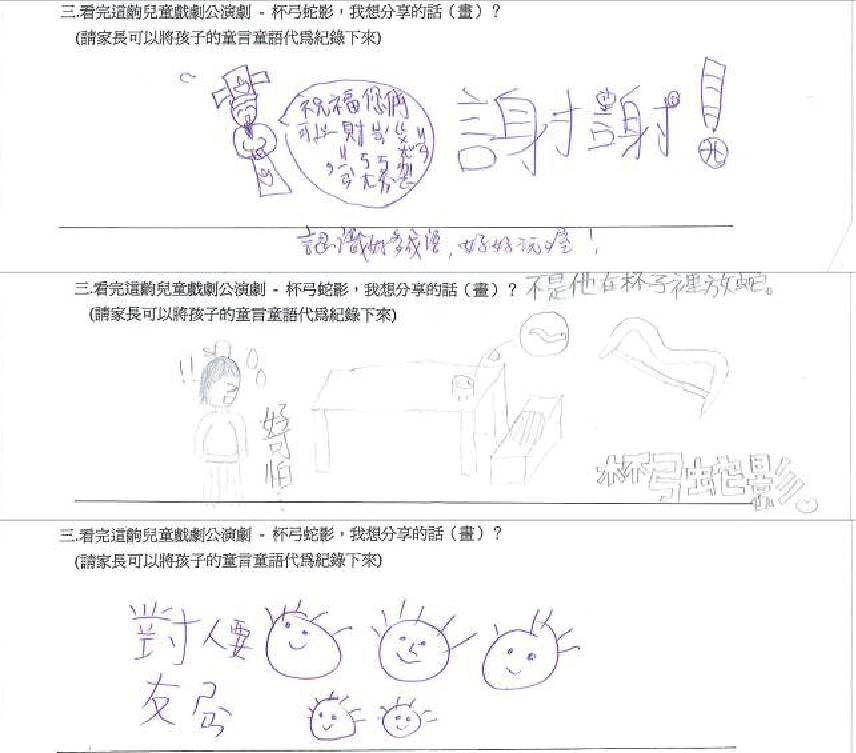 三.看完這齣兒童戲劇公演劇 - 杯弓蛇影，我想分享的話（畫）？
(請家長可以將孩子的童言童語代為紀錄下來)
祝福您們
可以
財
謝謝！
認識好多成語，好好玩喔！
三.看完這齣兒童戲劇公演劇 - 杯弓蛇影，我想分享的話（畫）？
不是他在杯子裡放蛇。
(請家長可以將孩子的童言童語代為紀錄下來)
!!
好可怕
杯弓蛇影。
三.看完這齣兒童戲劇公演劇 - 杯弓蛇影，我想分享的話（畫）？
(請家長可以將孩子的童言童語代為紀錄下來)
對人要
友